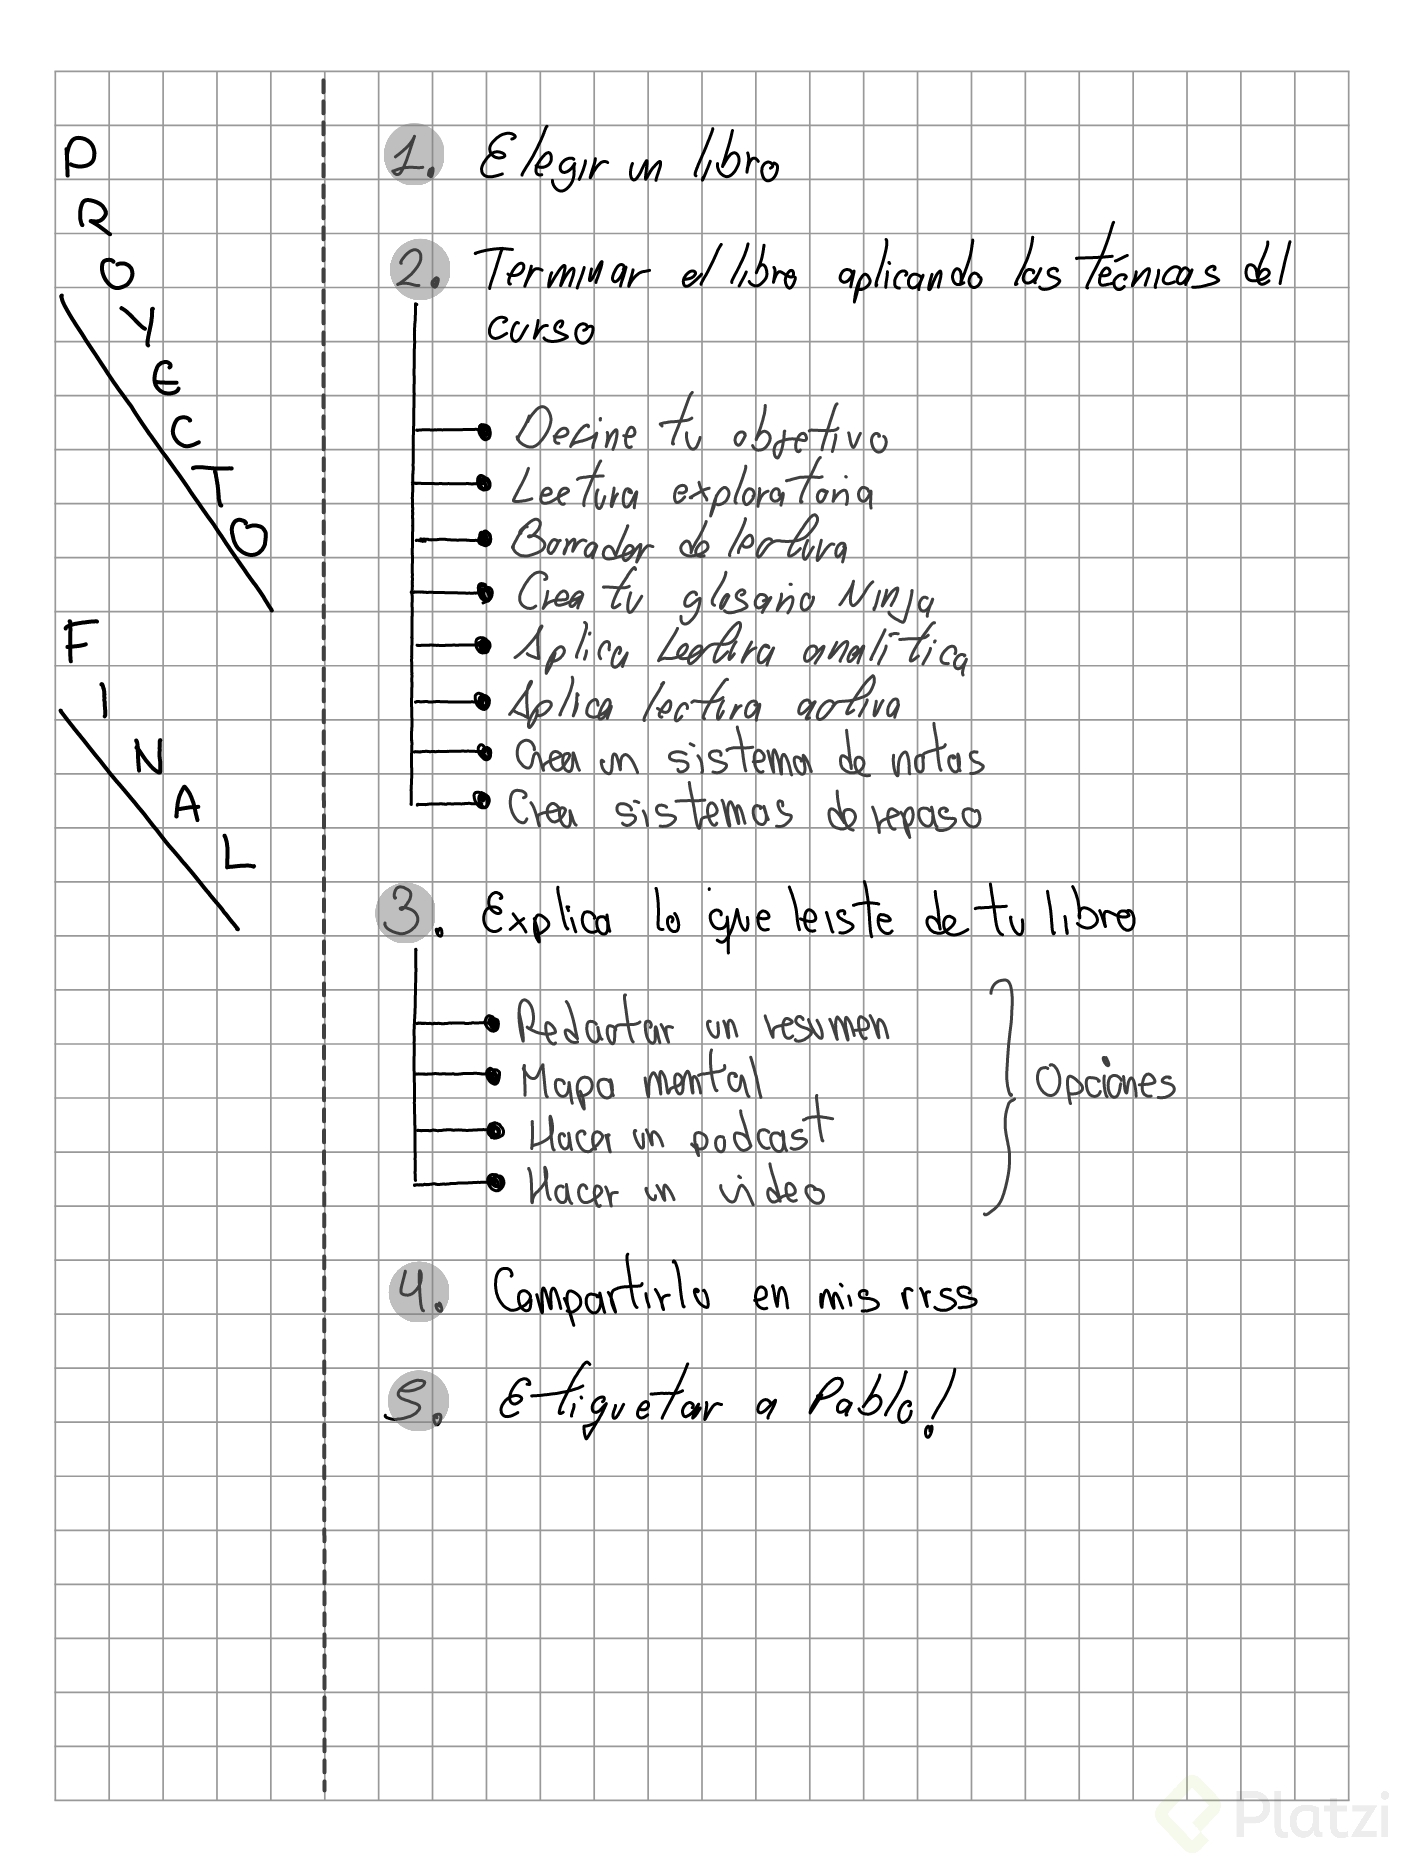 PROYECTO
FINAL
1. Elegir un libro
2. Terminar el libro aplicando las técnicas del
curso
Define tu objetivo
Lectura exploratoria
Borrador de lectura
Crea tu glosario Ninja
Aplica Lectura analítica
Aplica lectura activa
Crea un sistema de notas
Crea sistemas de repaso
3. Explica lo que leiste de tu libro
Redactar un resumen
Mapa mental
Hacer un podcast
Hacer un video
Opciones
4. Compartirlo en mis rrss
5. Etiquetar a Pablo!
Platzi